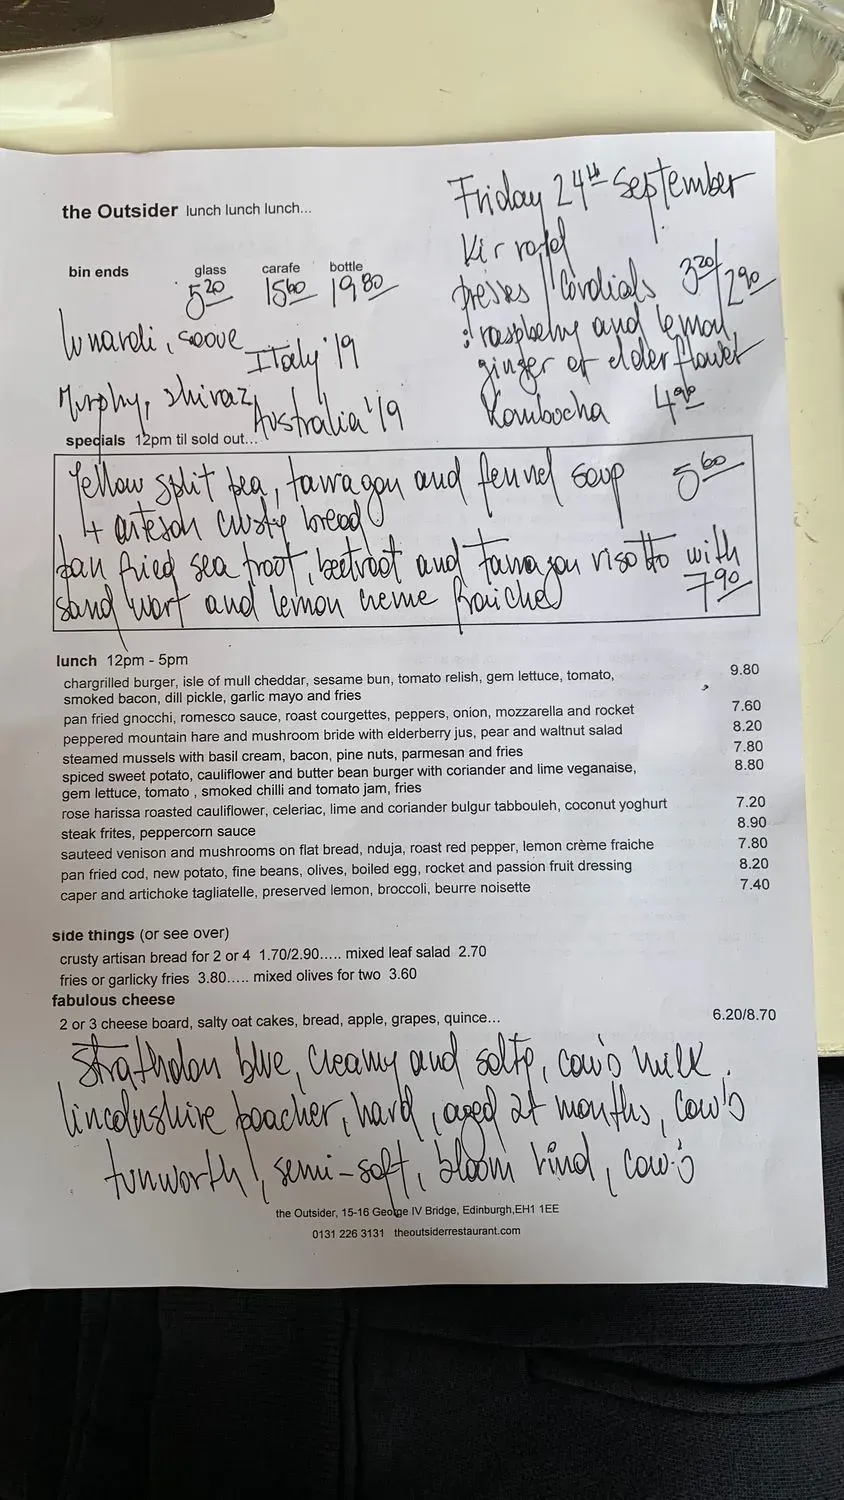 the Outsider lunch lunch lunch...
Friday 24th September
Kir royal
bin ends glass carafe bottle
5.20 15.60 19.80
presses / cordials 3.20/2.90
Lunardi, soove Italy '19
: raspberry and lemon,
ginger or elderflower
Murphy, shiraz, Australia '19
Kombocha 4.90
specials 12pm til sold out...
Yellow split pea, tarragon and fennel soup 5.60
+ artesan crusty bread
pan fried sea trout, beetroot and tarragon risotto with
sand wort and lemon creme fraiche 7.90
lunch 12pm - 5pm
chargrilled burger, isle of mull cheddar, sesame bun, tomato relish, gem lettuce, tomato, 9.80
smoked bacon, dill pickle, garlic mayo and fries
pan fried gnocchi, romesco sauce, roast courgettes, peppers, onion, mozzarella and rocket 7.60
peppered mountain hare and mushroom bride with elderberry jus, pear and waltnut salad 8.20
steamed mussels with basil cream, bacon, pine nuts, parmesan and fries 7.80
spiced sweet potato, cauliflower and butter bean burger with coriander and lime veganaise, 8.80
gem lettuce, tomato , smoked chilli and tomato jam, fries
rose harissa roasted cauliflower, celeriac, lime and coriander bulgur tabbouleh, coconut yoghurt 7.20
steak frites, peppercorn sauce 8.90
sauteed venison and mushrooms on flat bread, nduja, roast red pepper, lemon crème fraiche 7.80
pan fried cod, new potato, fine beans, olives, boiled egg, rocket and passion fruit dressing 8.20
caper and artichoke tagliatelle, preserved lemon, broccoli, beurre noisette 7.40
side things (or see over)
crusty artisan bread for 2 or 4 1.70/2.90..... mixed leaf salad 2.70
fries or garlicky fries 3.80..... mixed olives for two 3.60
fabulous cheese
2 or 3 cheese board, salty oat cakes, bread, apple, grapes, quince... 6.20/8.70
Strathdon blue, creamy and salty, cow's milk.
lincolnshire poacher, hard, aged 24 months, cow's
tunworth, semi-soft, bloom rind, cow's
the Outsider, 15-16 George IV Bridge, Edinburgh,EH1 1EE
0131 226 3131 theoutsiderrestaurant.com